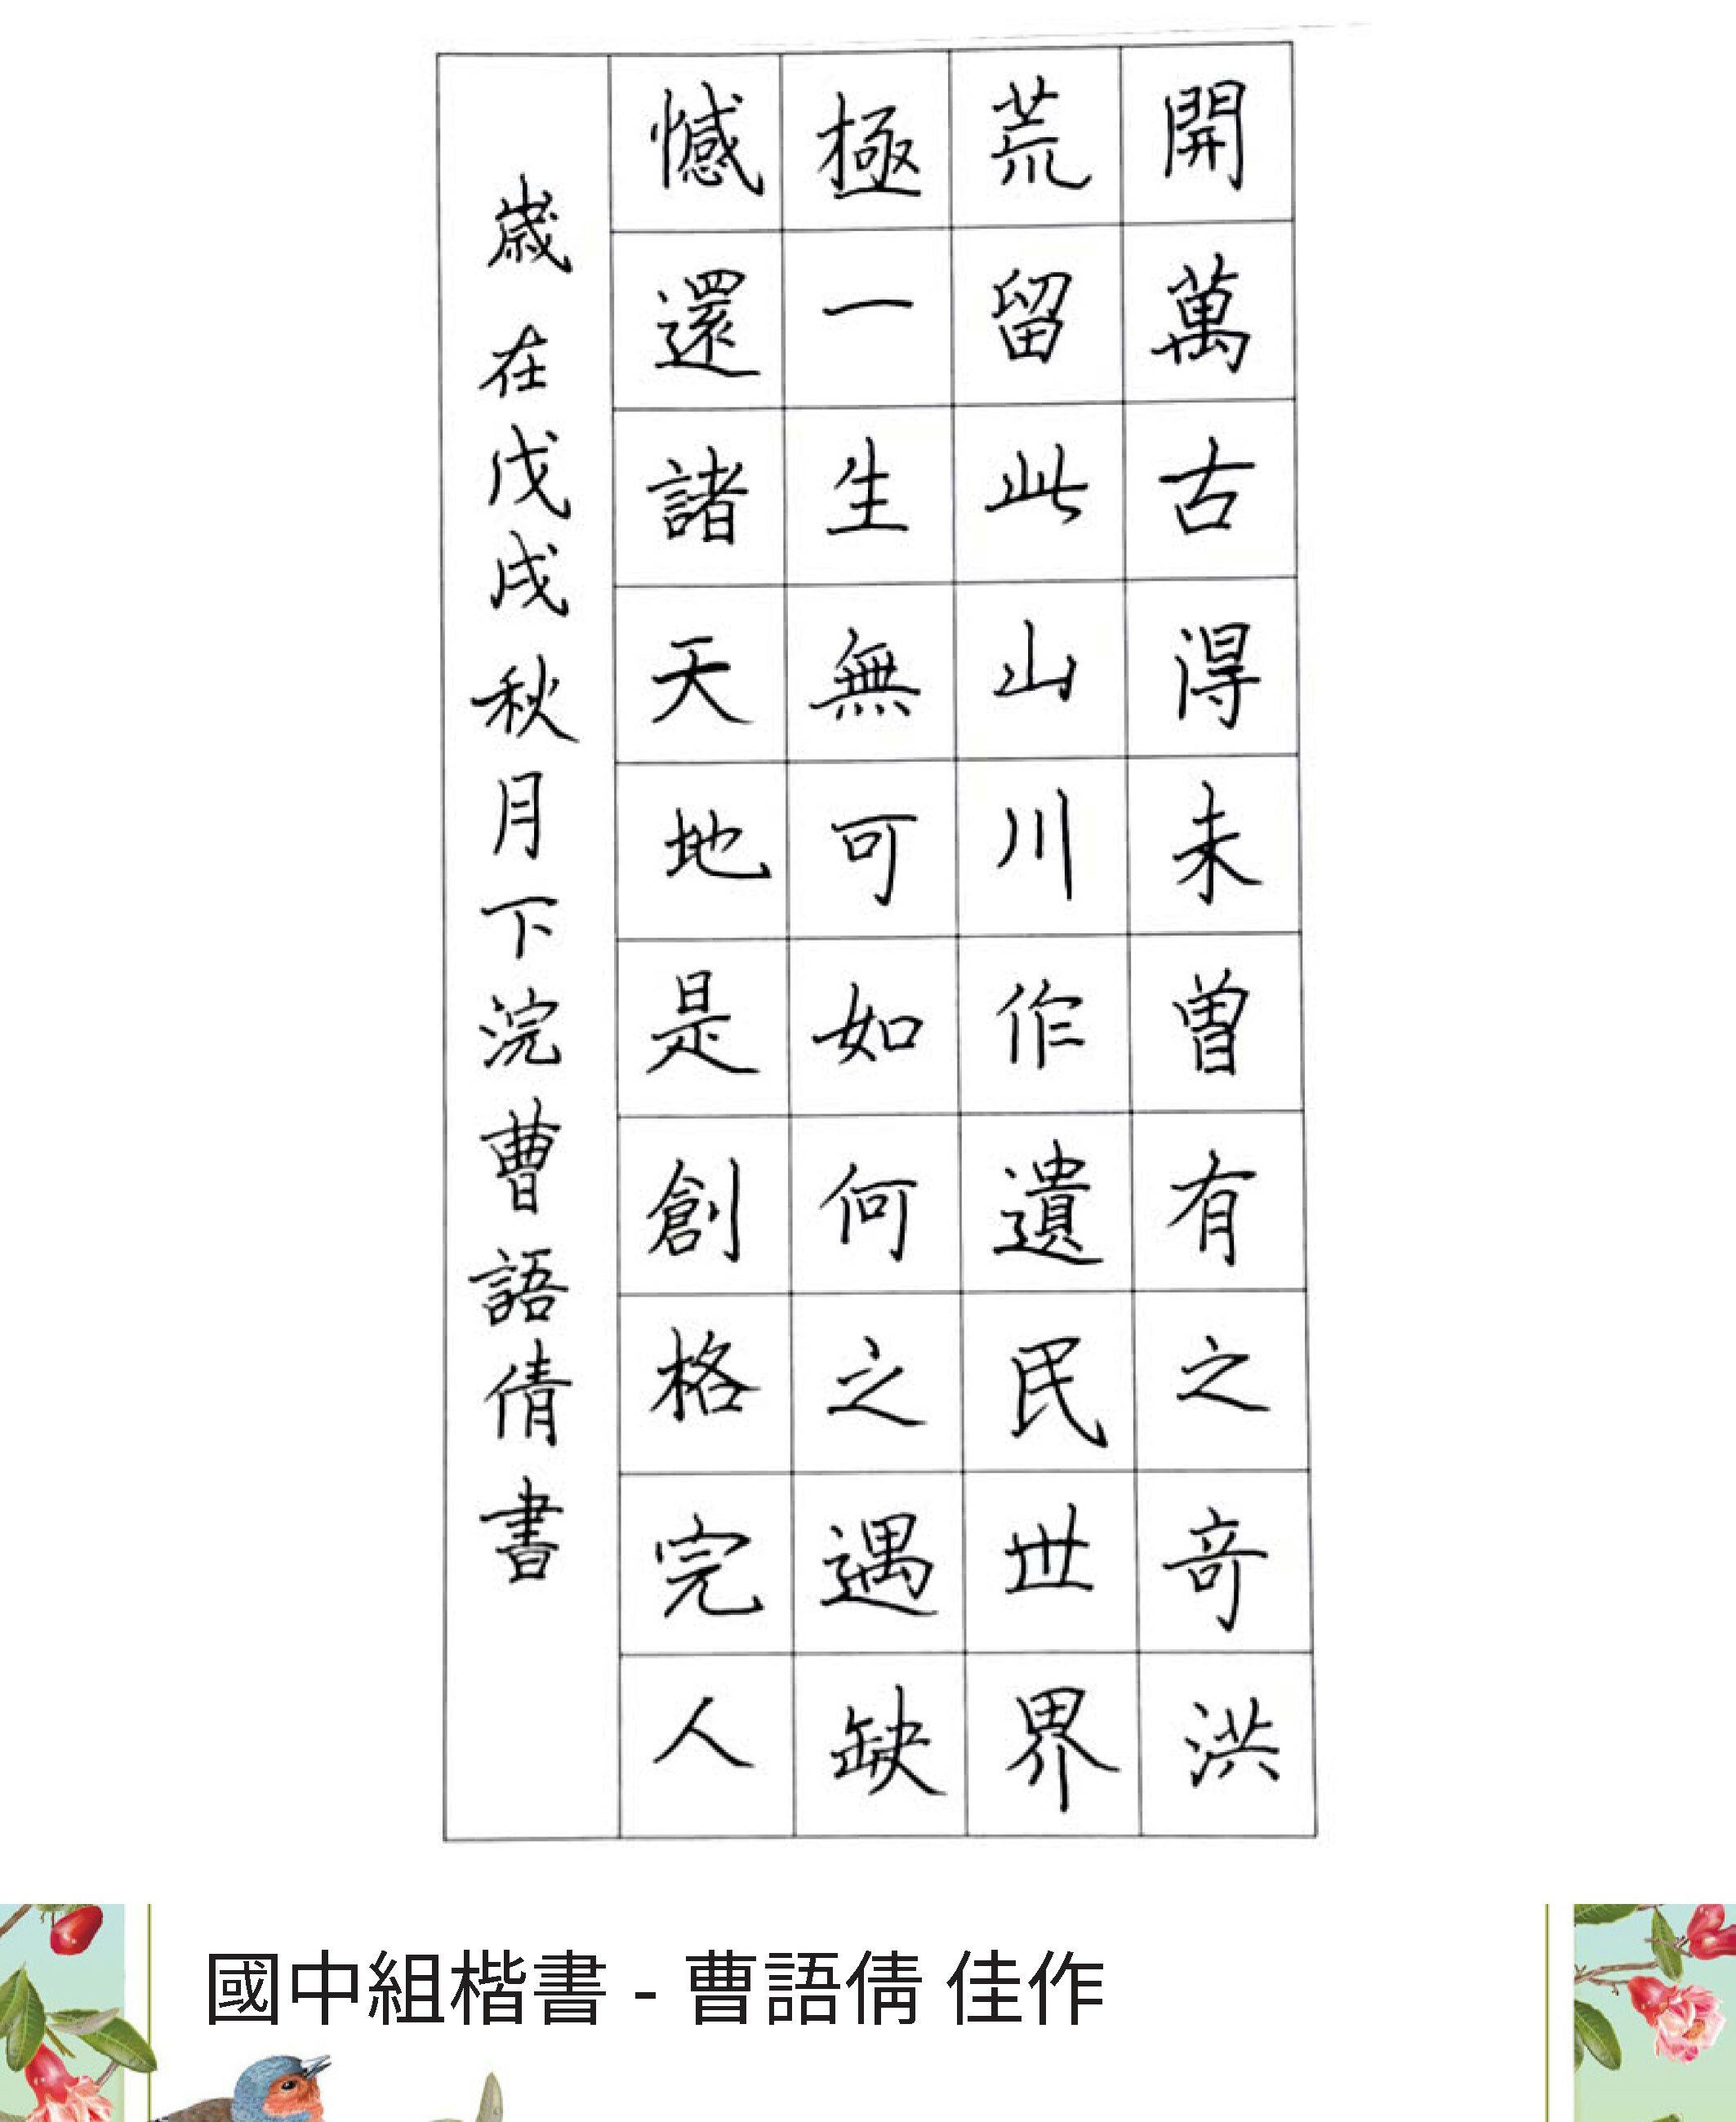 開萬古得未曾有之奇洪
荒留此山川作遺民世界
極一生無可如何之遇缺
憾還諸天地是創格完人
歲在戊戌秋月下浣曹語倩書
國中組楷書 - 曹語倩 佳作